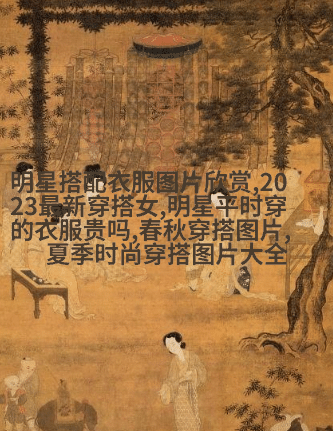 明星搭配衣服图片欣赏,20
23最新穿搭女,明星平时穿
的衣服贵吗,春秋穿搭图片,
夏季时尚穿搭图片大全